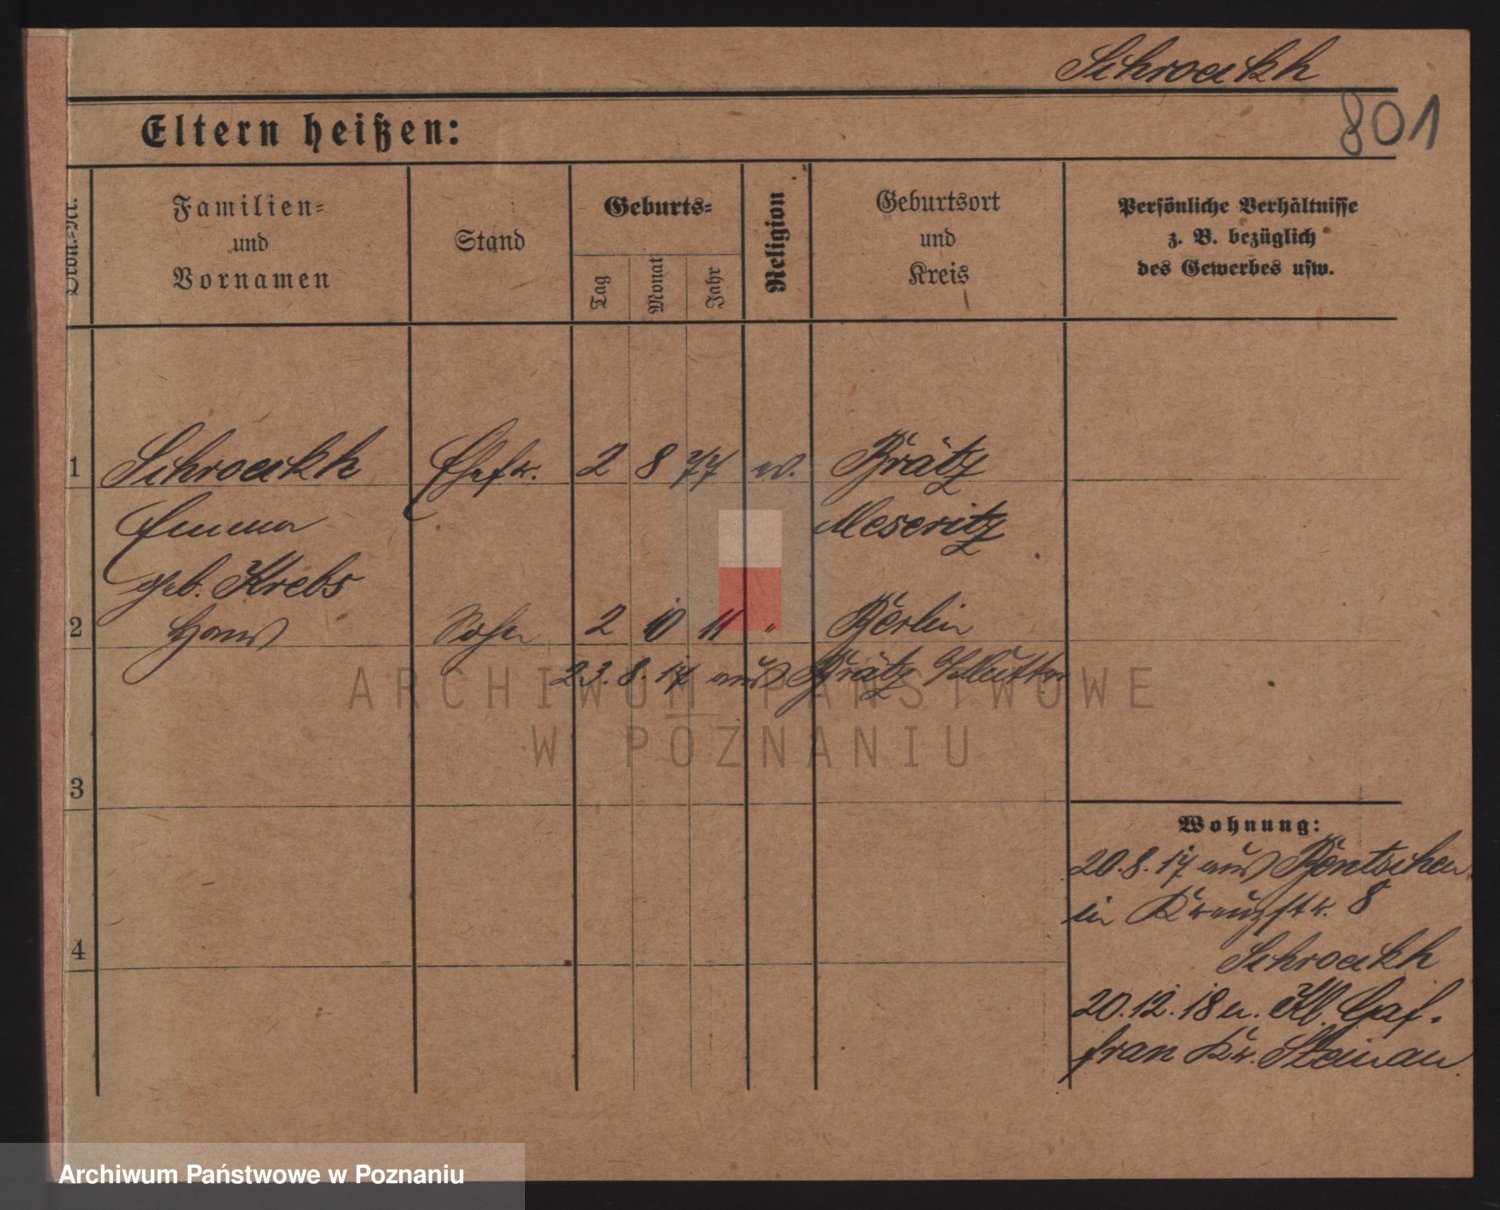 Schroeckh
801
Eltern heißen:
Ordn.-Nr.
Familien-
und
Vornamen
Stand
Geburts-
Tag
Monat
Jahr
Religion
Geburtsort
und
Kreis
Persönliche Verhältnisse
z. B. bezüglich
des Gewerbes usw.
1 Schroeckh Ehefr. 2 8 77 ev. Brätz
Emma Meseritz
geb. Krebs
2 Hans Sohn 2 10 11 " Berlin
23. 8. 17 aus Brätz
3
4
Wohnung:
20.8.17 aus Bentschen
in Kreuzstr. 8
Schroeckh
20.12.18 n. Kl. Gaf-
fran Kr. Steinau
ARCHIWUM PAŃSTWOWE
W POZNANIU
Archiwum Państwowe w Poznaniu